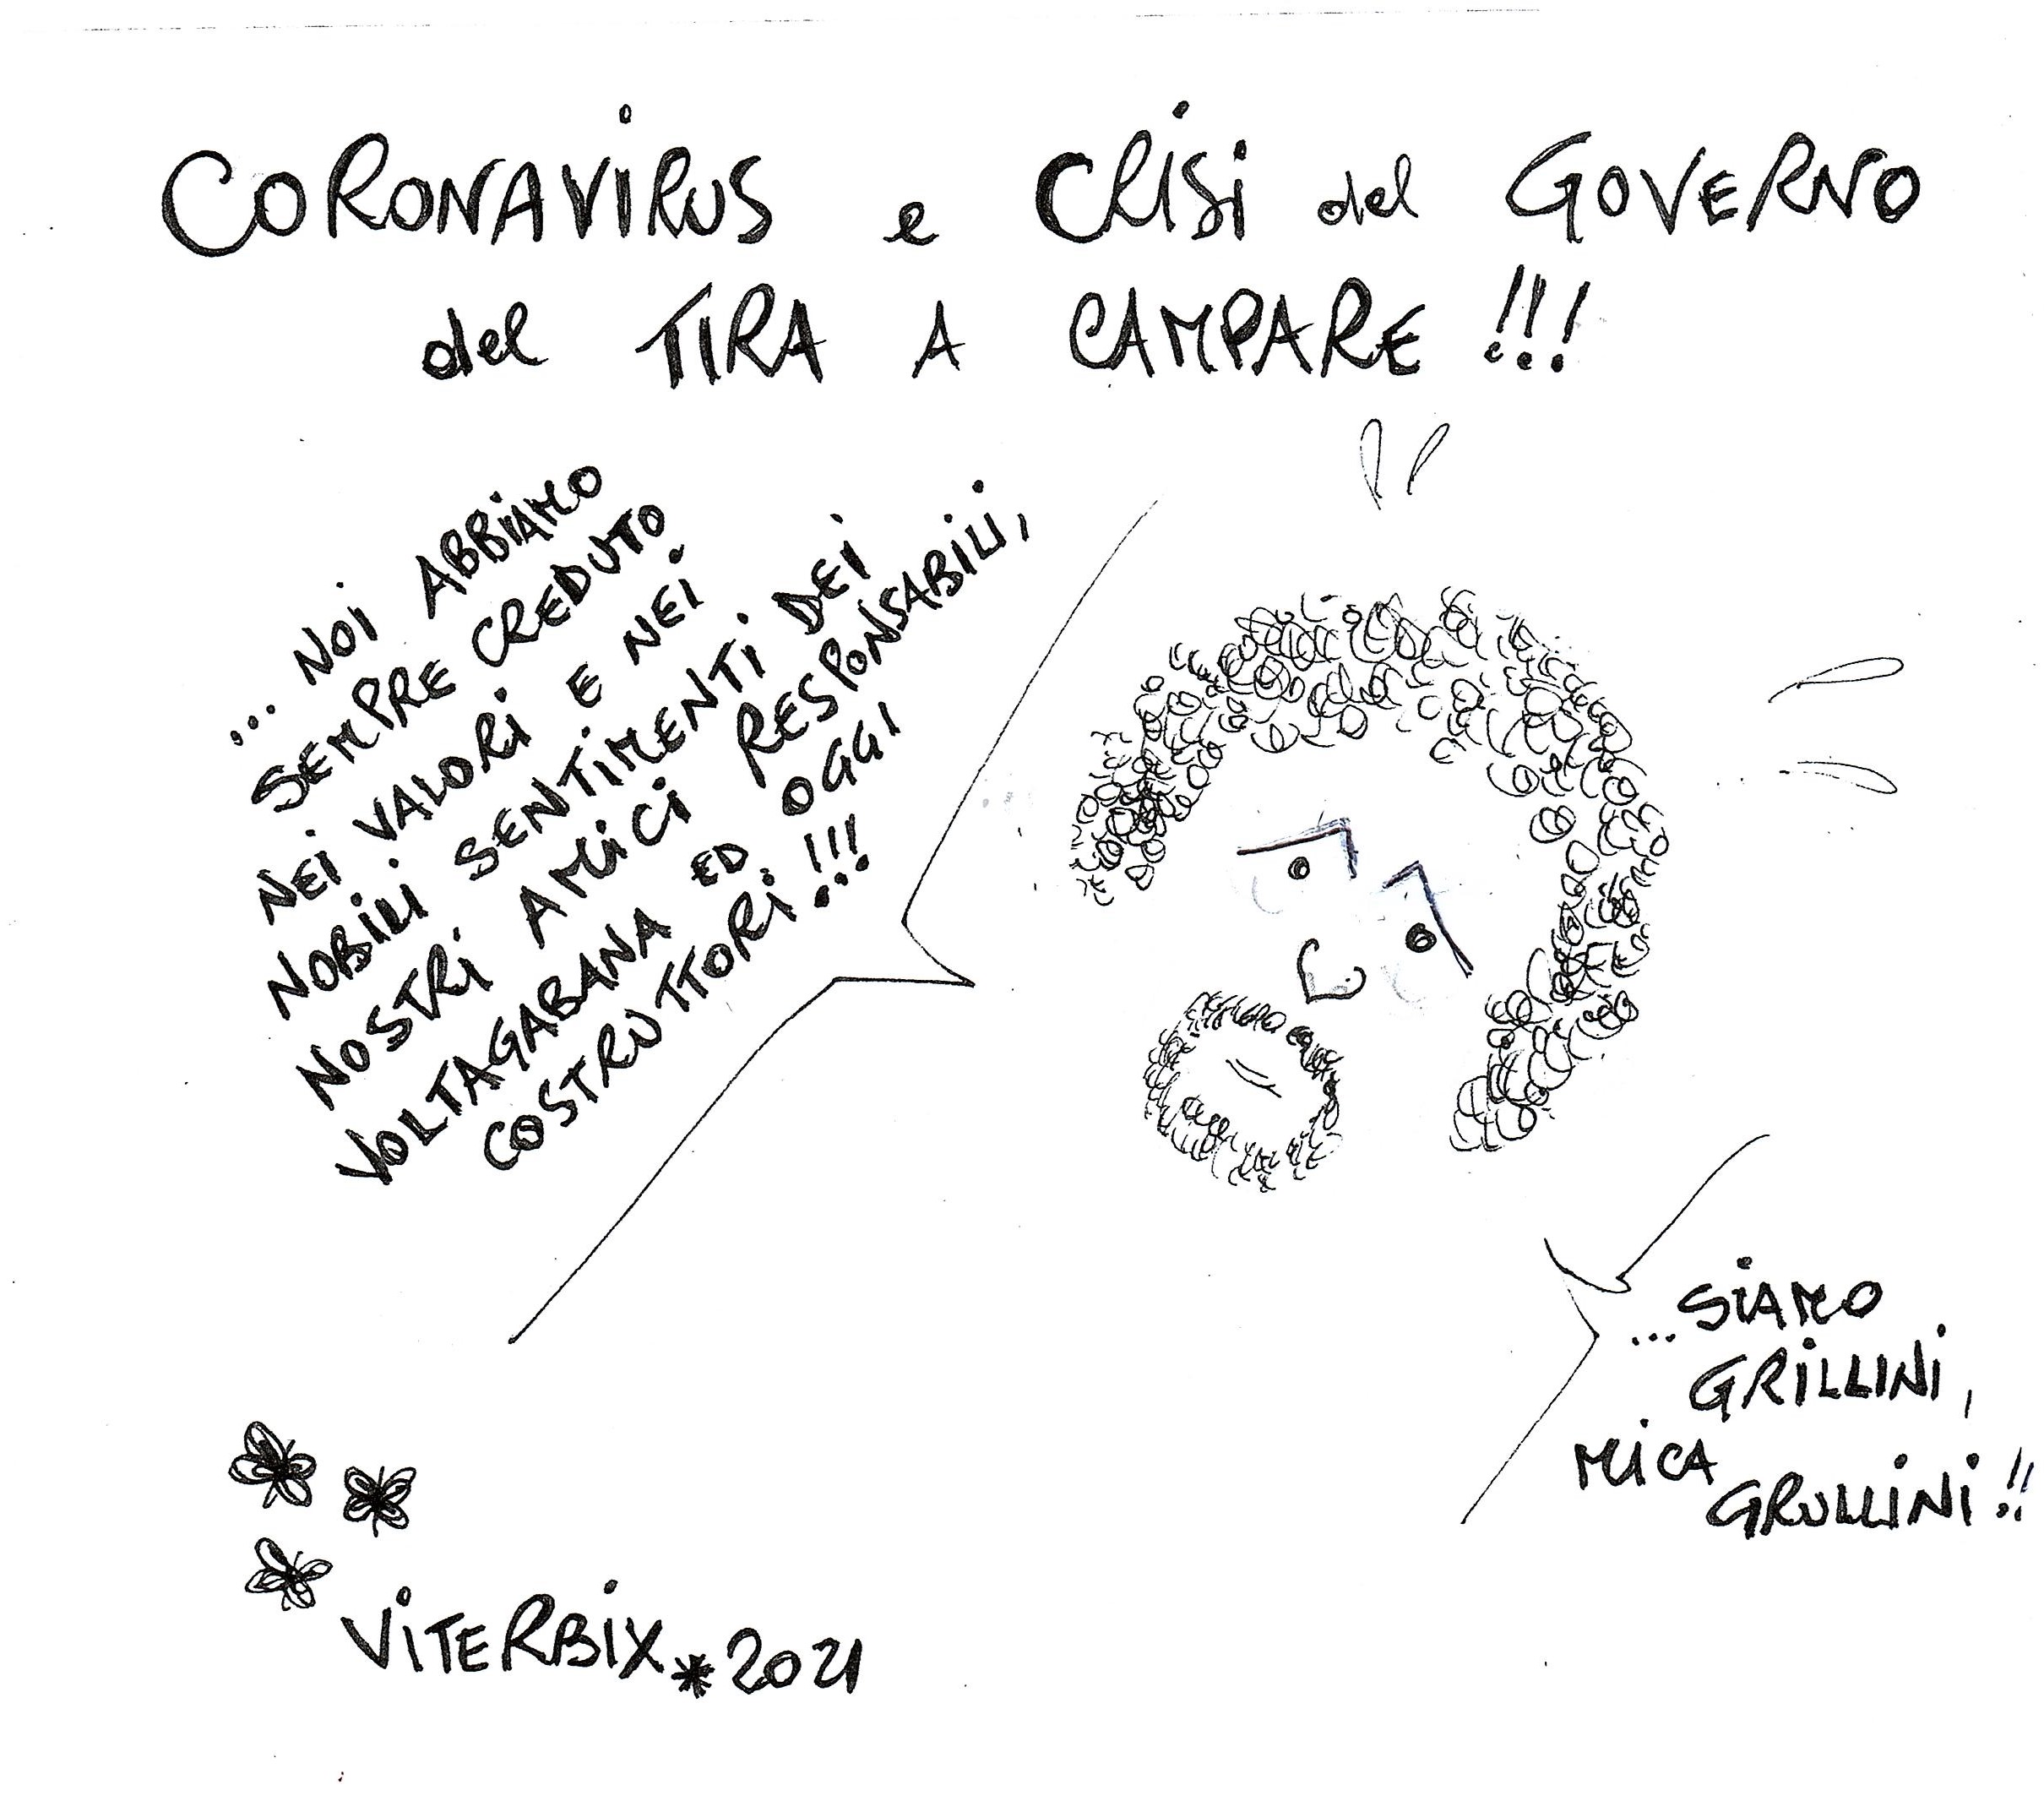 CORONAVIRUS e CRISI del GOVERNO
del TIRA A CAMPARE !!!
... NOI ABBIAMO
SEMPRE CREDUTO
NEI VALORI E NEI
NOBILI SENTIMENTI DEI
NOSTRI AMICI RESPONSABILI,
VOLTAGABANA ED OGGI
COSTRUTTORI !!!
... SIAMO
GRILLINI,
MICA
GRULLINI !!
VITERBIX * 2021